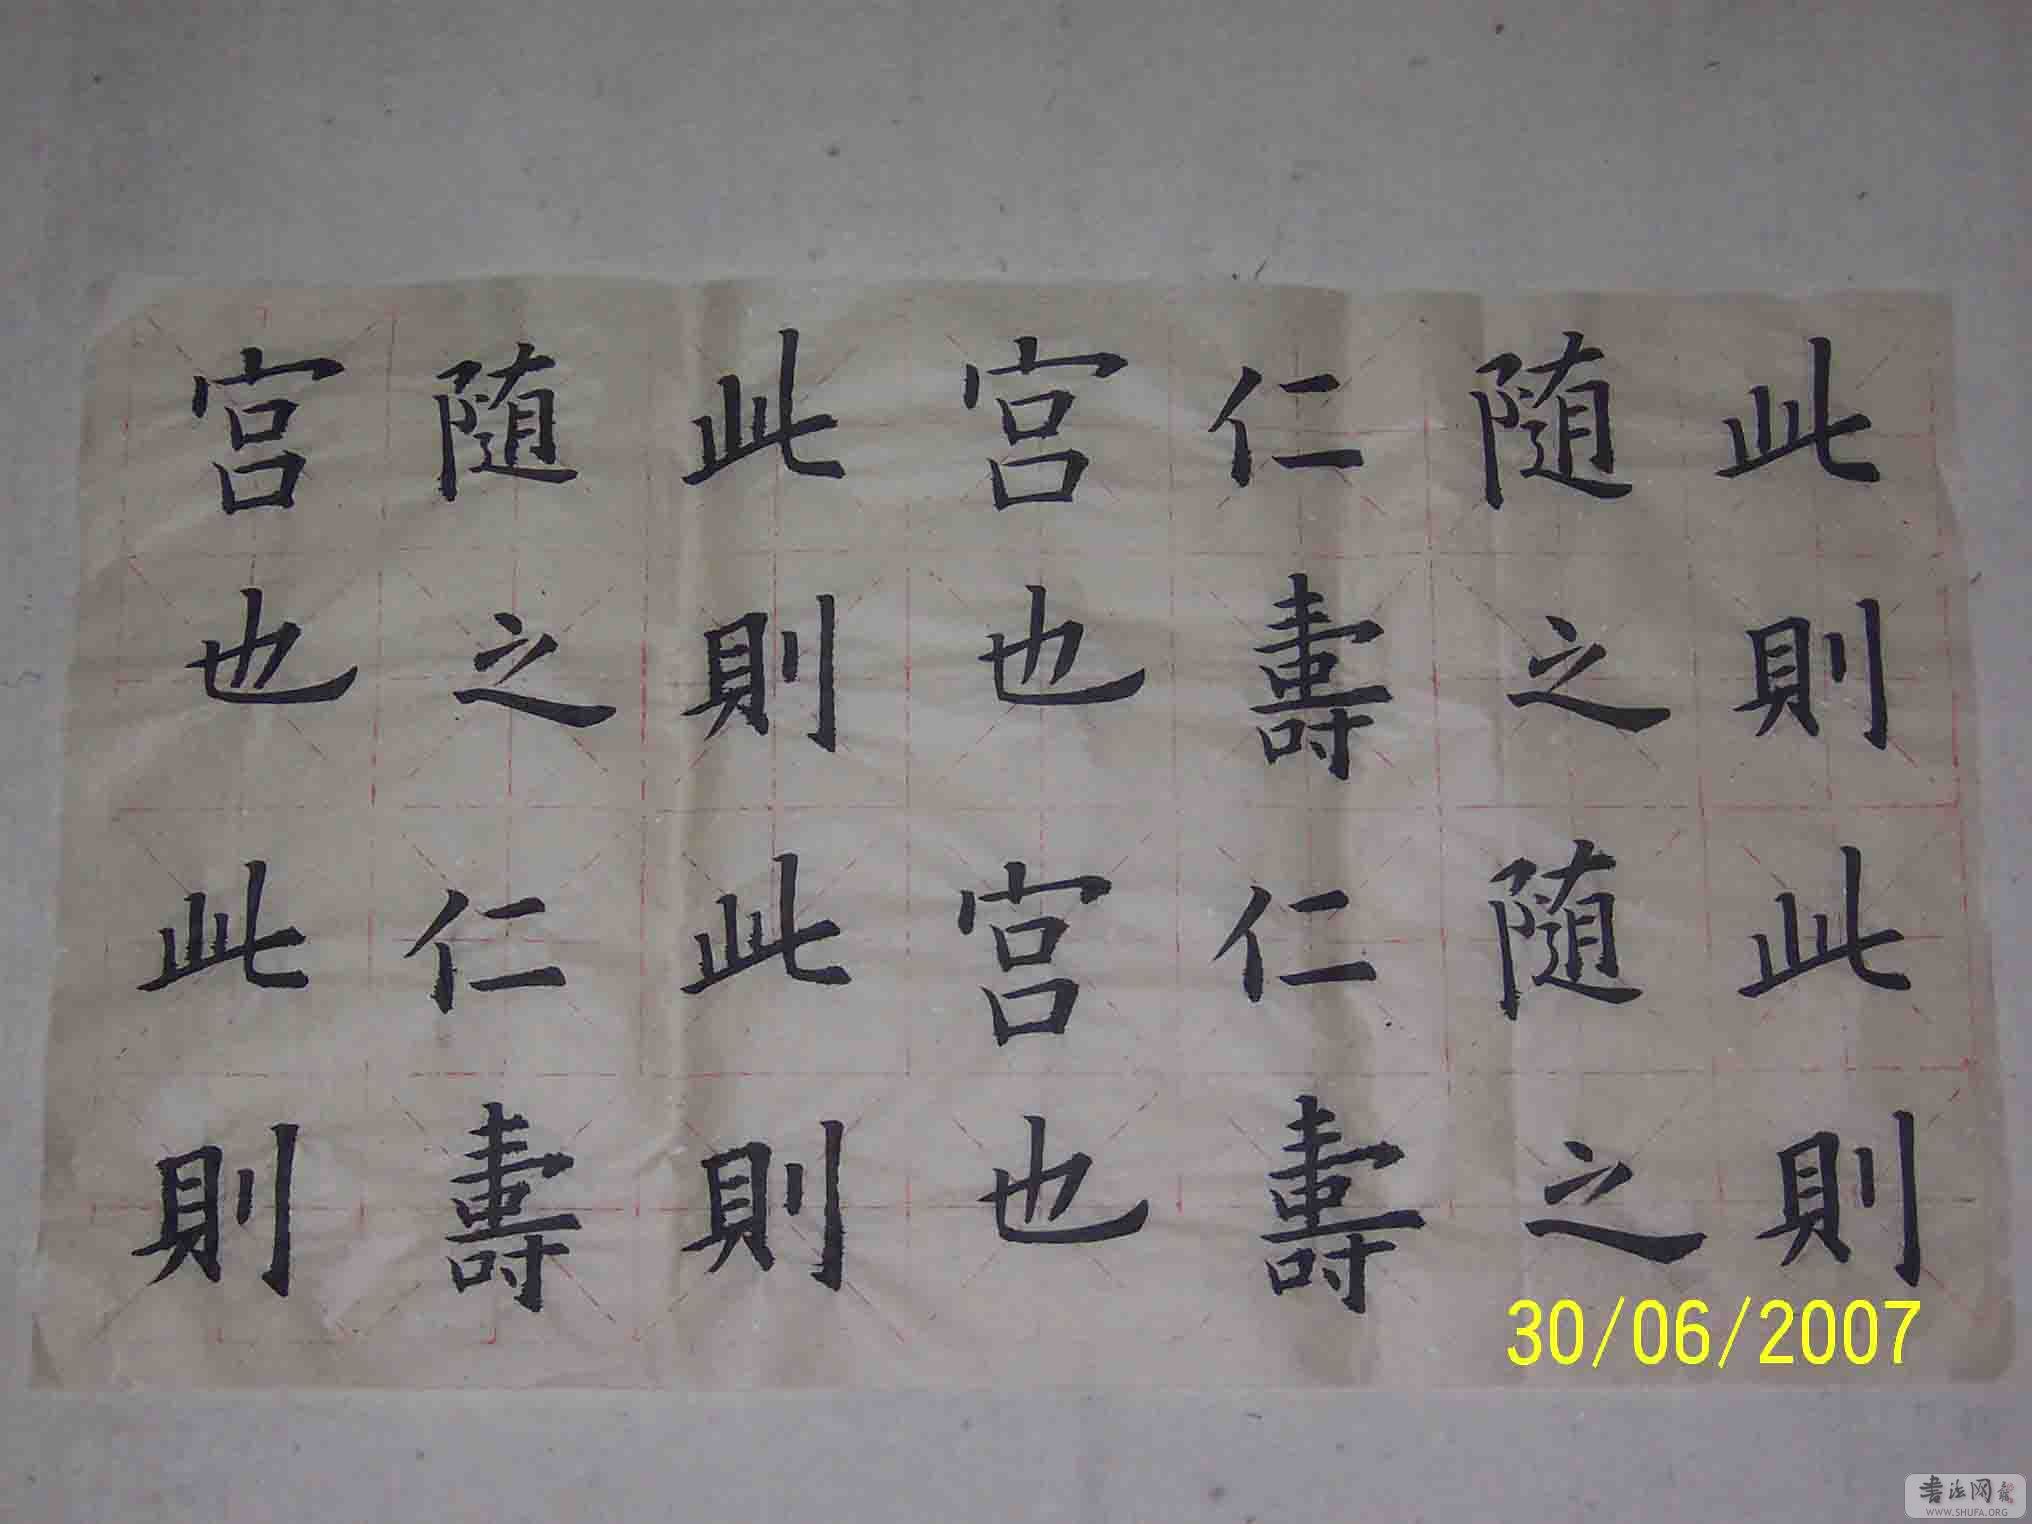 此則此則
随之随之
仁壽仁壽
宫也宫也
此則此則
随之仁壽
宫也此則
30/06/2007
书法网
WWW.SHUFA.ORG